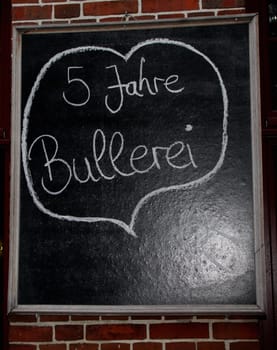 5 Jahre
Bullerei